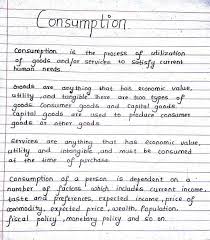 Consumption
Consumption is the process of utilization
of goods and/or services to satisfy current
human needs.
Goods are anything that has economic value,
utility and tangible there are two types of
goods Consumer goods and Capital goods.
Capital goods are used to produce consumer
goods or other goods.
Services are anything that has economic value,
utility and intangible and must be consumed
at the time of purchase
Consumption of a person is dependent on a
number of factors which includes current income,
taste and preferences, expected income, price of
commodity, expected price, wealth, population,
fiscal policy, monetary policy and so on.